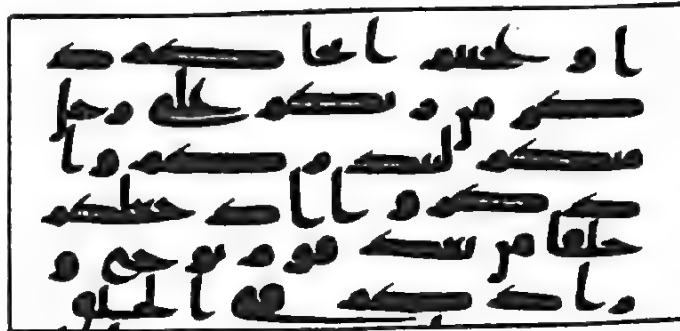 اوعجبتم ان جاكم ذ
كر من ربكم على رجل
منكم لينذركم وا
ذكروا اذ جعلكم
خلفا من بعد قوم نوح و
زادكم في الخلق